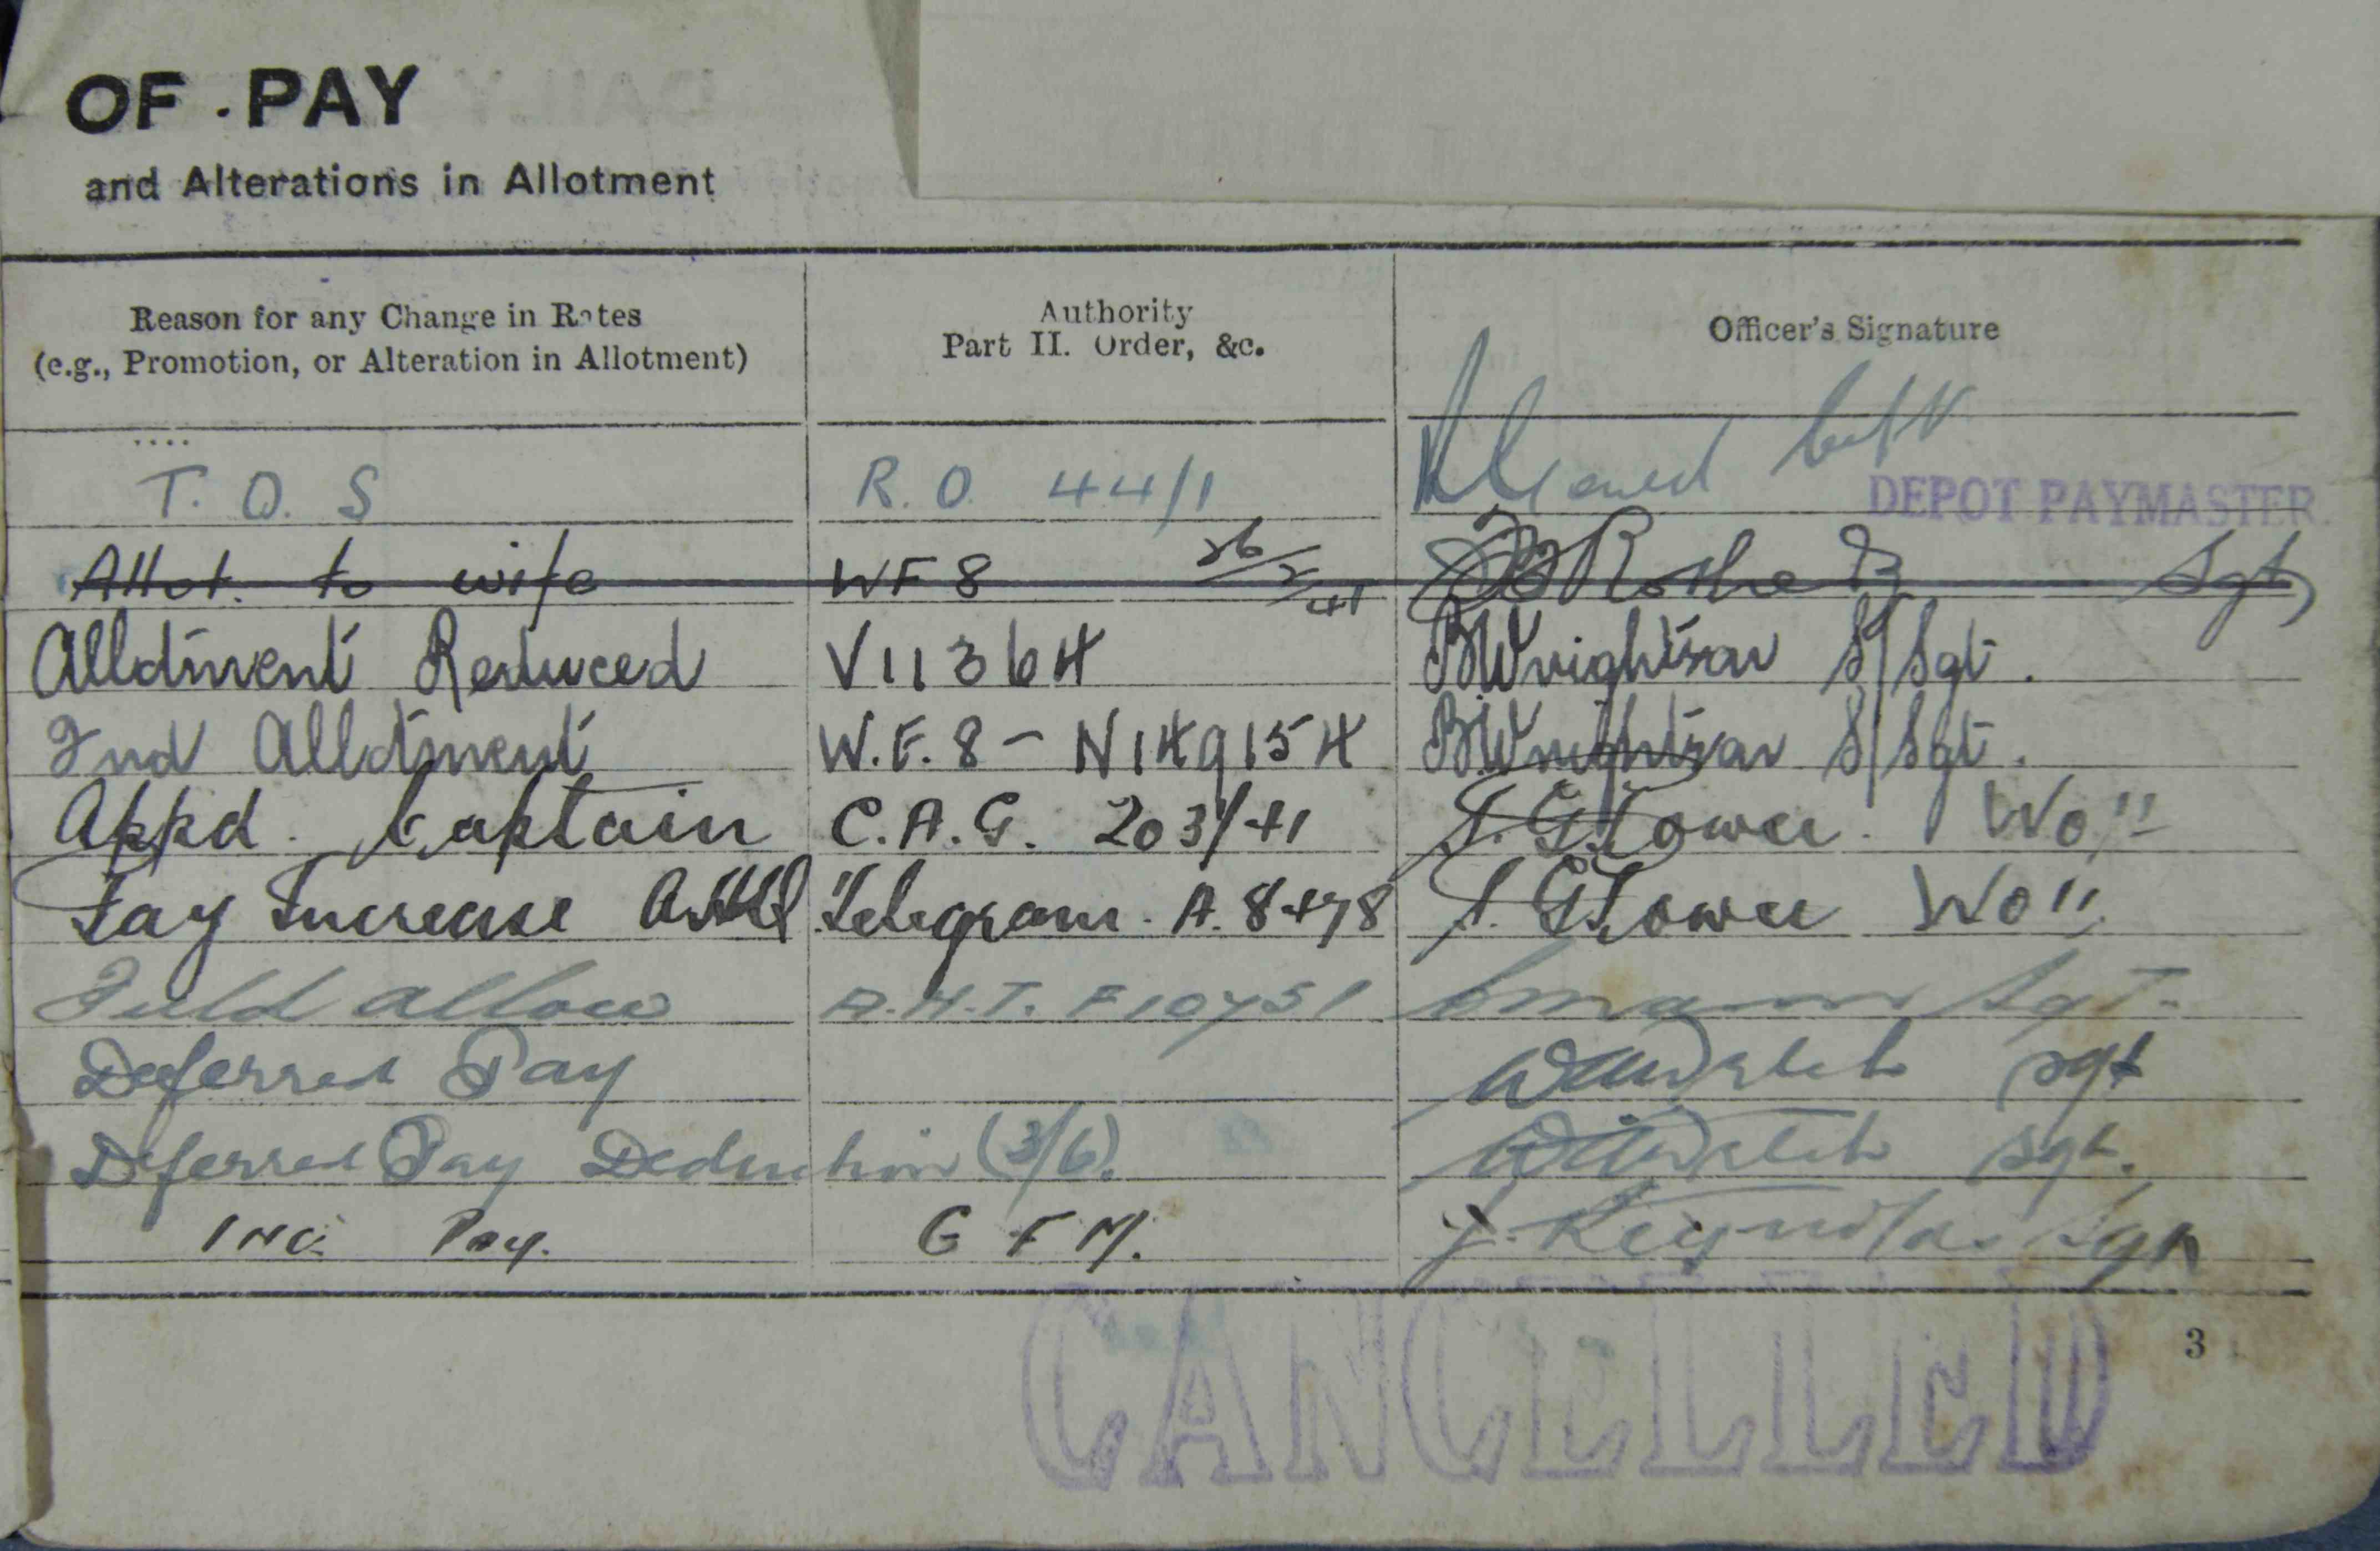 OF PAY
and Alterations in Allotment
Reason for any Change in Rates
(e.g., Promotion, or Alteration in Allotment)
Authority
Part II. Order, &c.
Officer's Signature
T. O. S R. O. 44/1
DEPOT PAYMASTER
Allot. to wife WF 8 26/2/41 Sgt
Allotment Reduced V11364 S/Sgt.
2nd Allotment W.F. 8 - N149154 S/Sgt.
Appd. Captain C.A.G. 203/41 WO II
Pay Increase Telegram. A. 8478 WO II
Field allow A.H.T. F10751 Sgt.
Deferred Pay Sgt
Deferred Pay Deduction (3/6). Sgt.
INC. Pay. G F M. J. Reynolds Sgt
CANCELLED
3